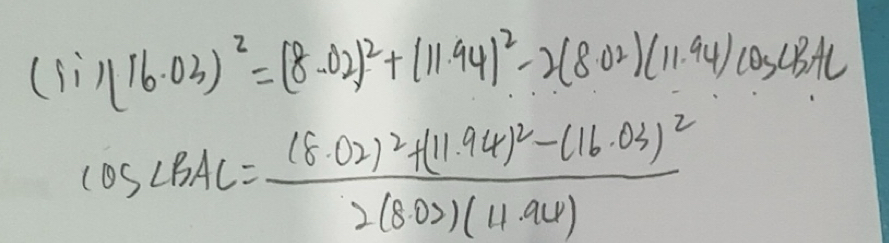 (sin(16.03)² = (8.02)² + (11.94)² - 2(8.02)(11.94) cos∠BAC
cos∠BAC = ((8.02)² + (11.94)² - (16.03)²) / (2(8.02)(11.94))